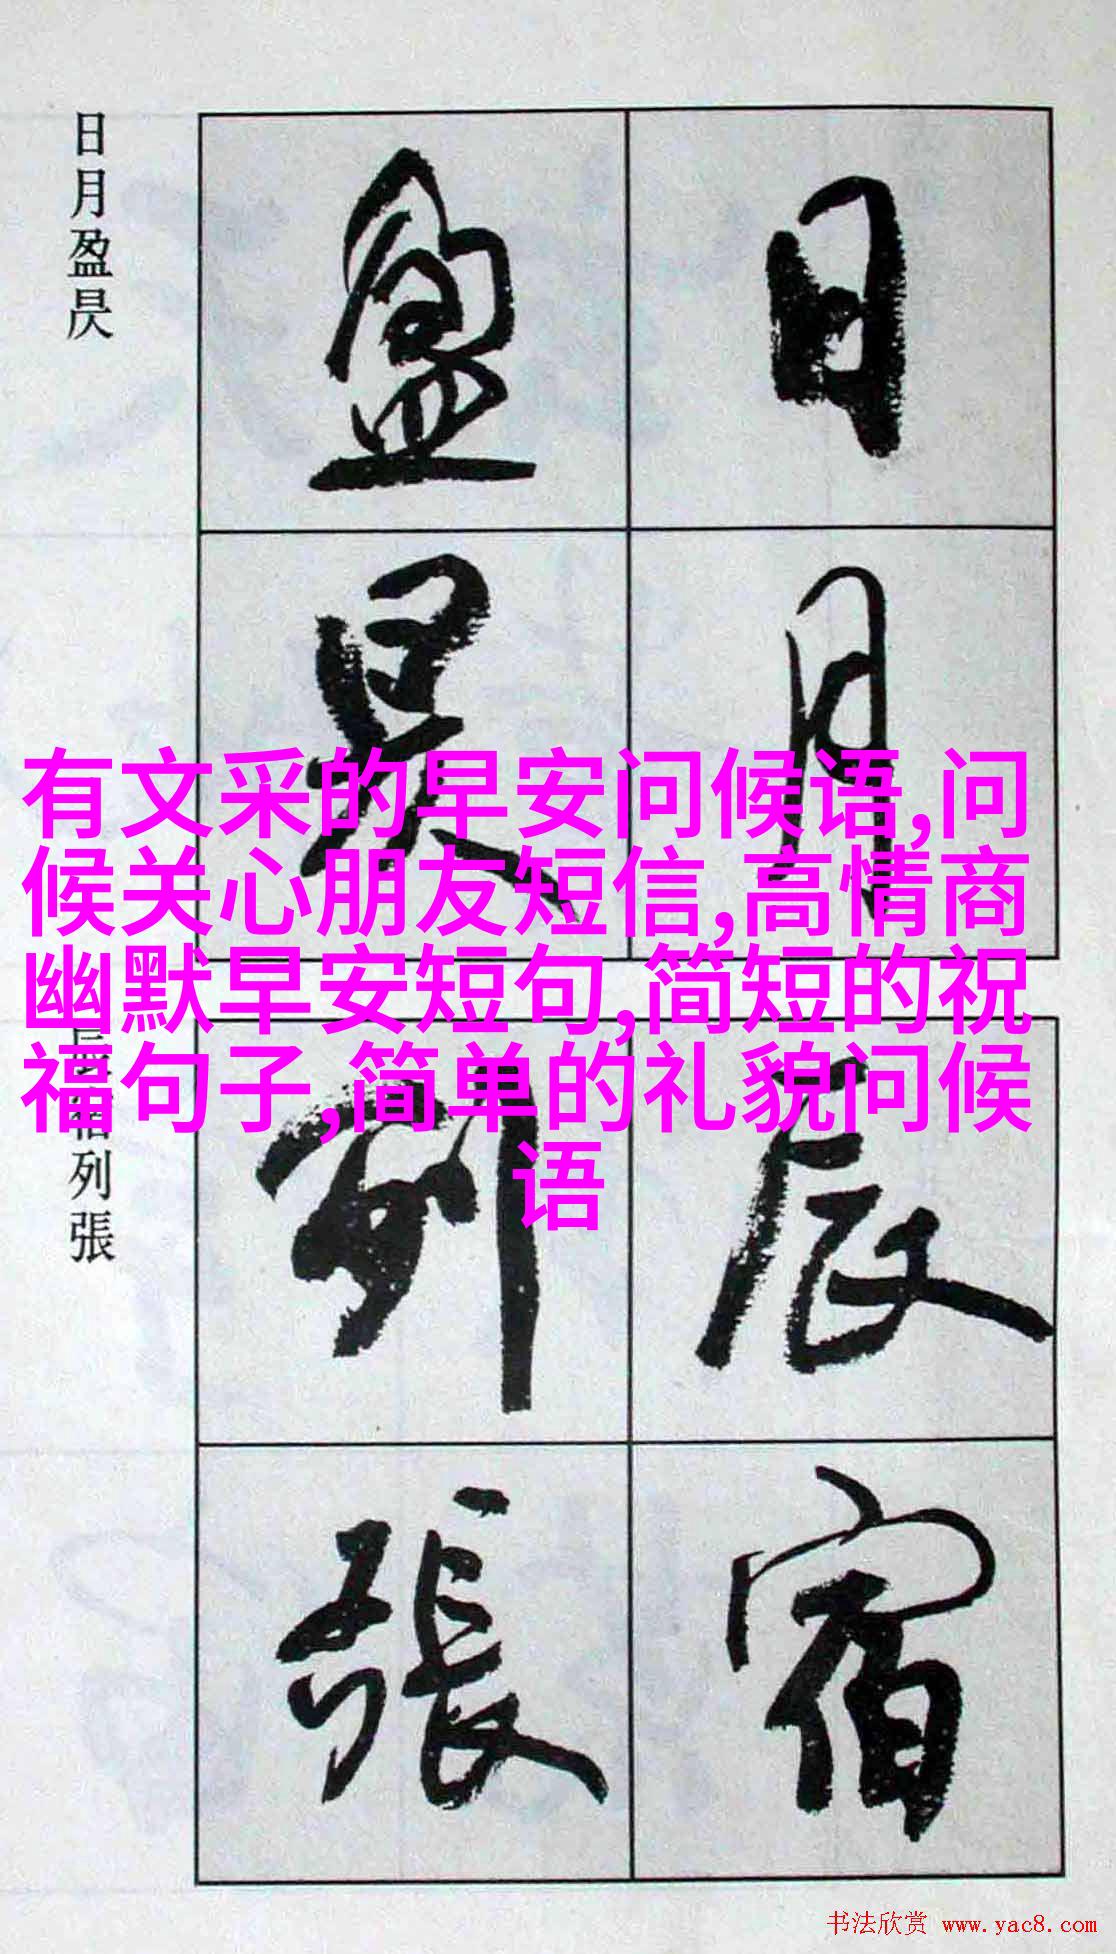 日月盈昃
日月
盈昃
有文采的早安问候语,问
候关心朋友短信,高情商
幽默早安短句,简短的祝
福句子,简单的礼貌问候
语
辰宿列張
辰宿
列張
书法欣赏 www.yac8.com